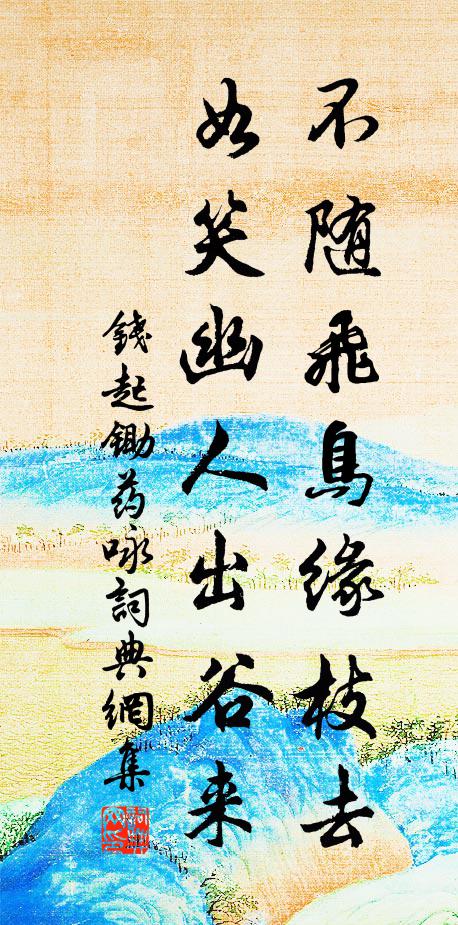 不随飛鳥缘枝去
如笑幽人出谷来
錢起鋤药咏詞典網集